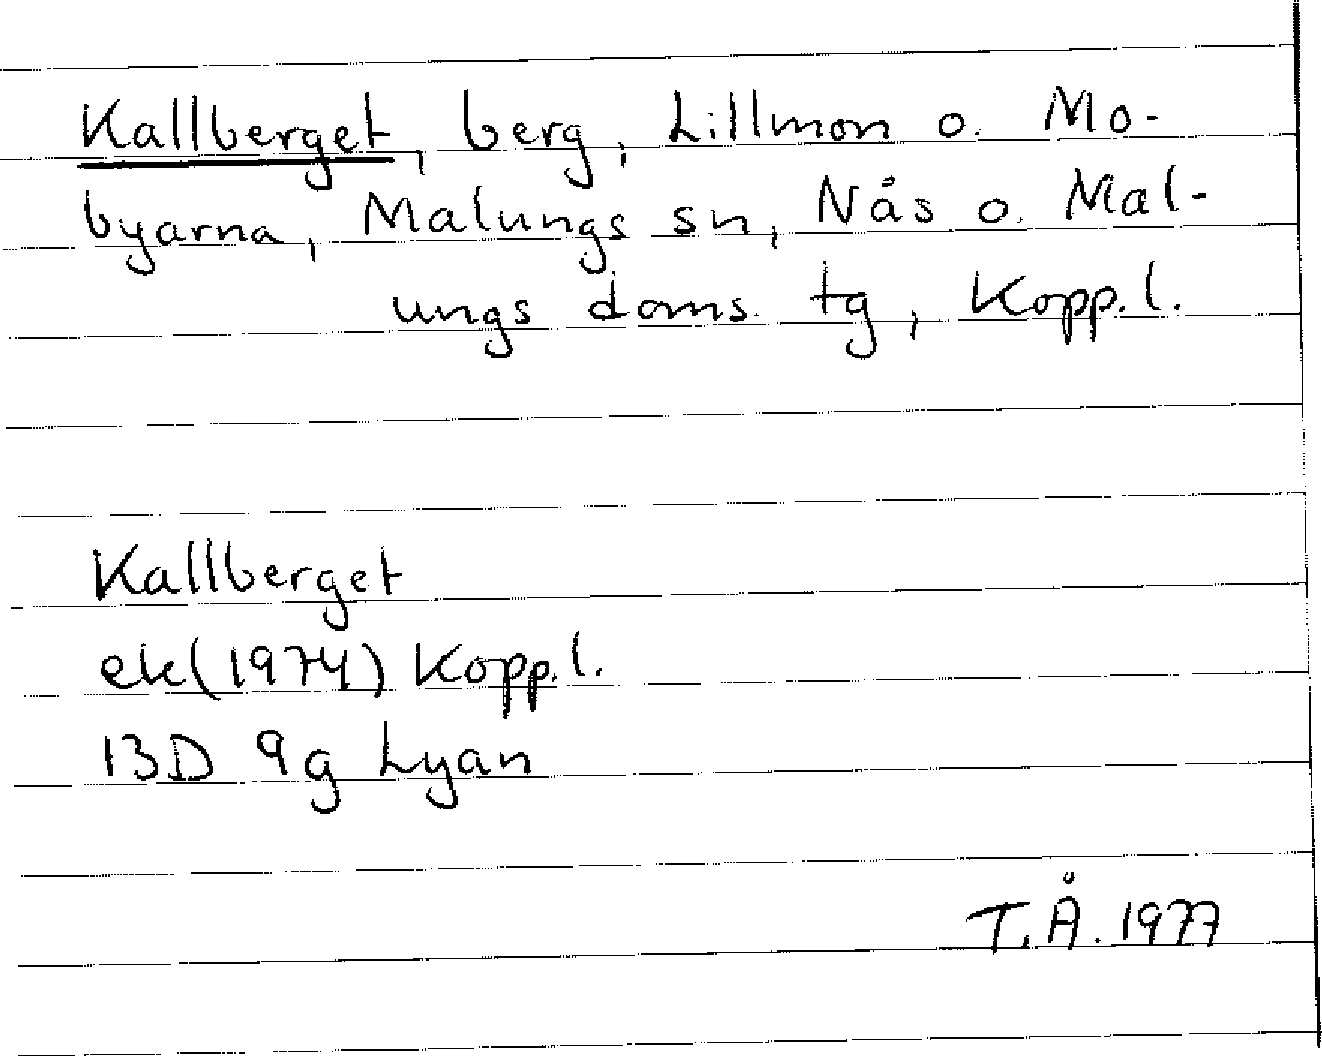 Kallberget, berg, Lillmon o. Mo-
byarna, Malungs sn, Nås o. Mal-
ungs doms. tg, Kopp.l.
Kallberget
ek(1974) Kopp.l.
13D 9g Lyan
T.Å. 1977